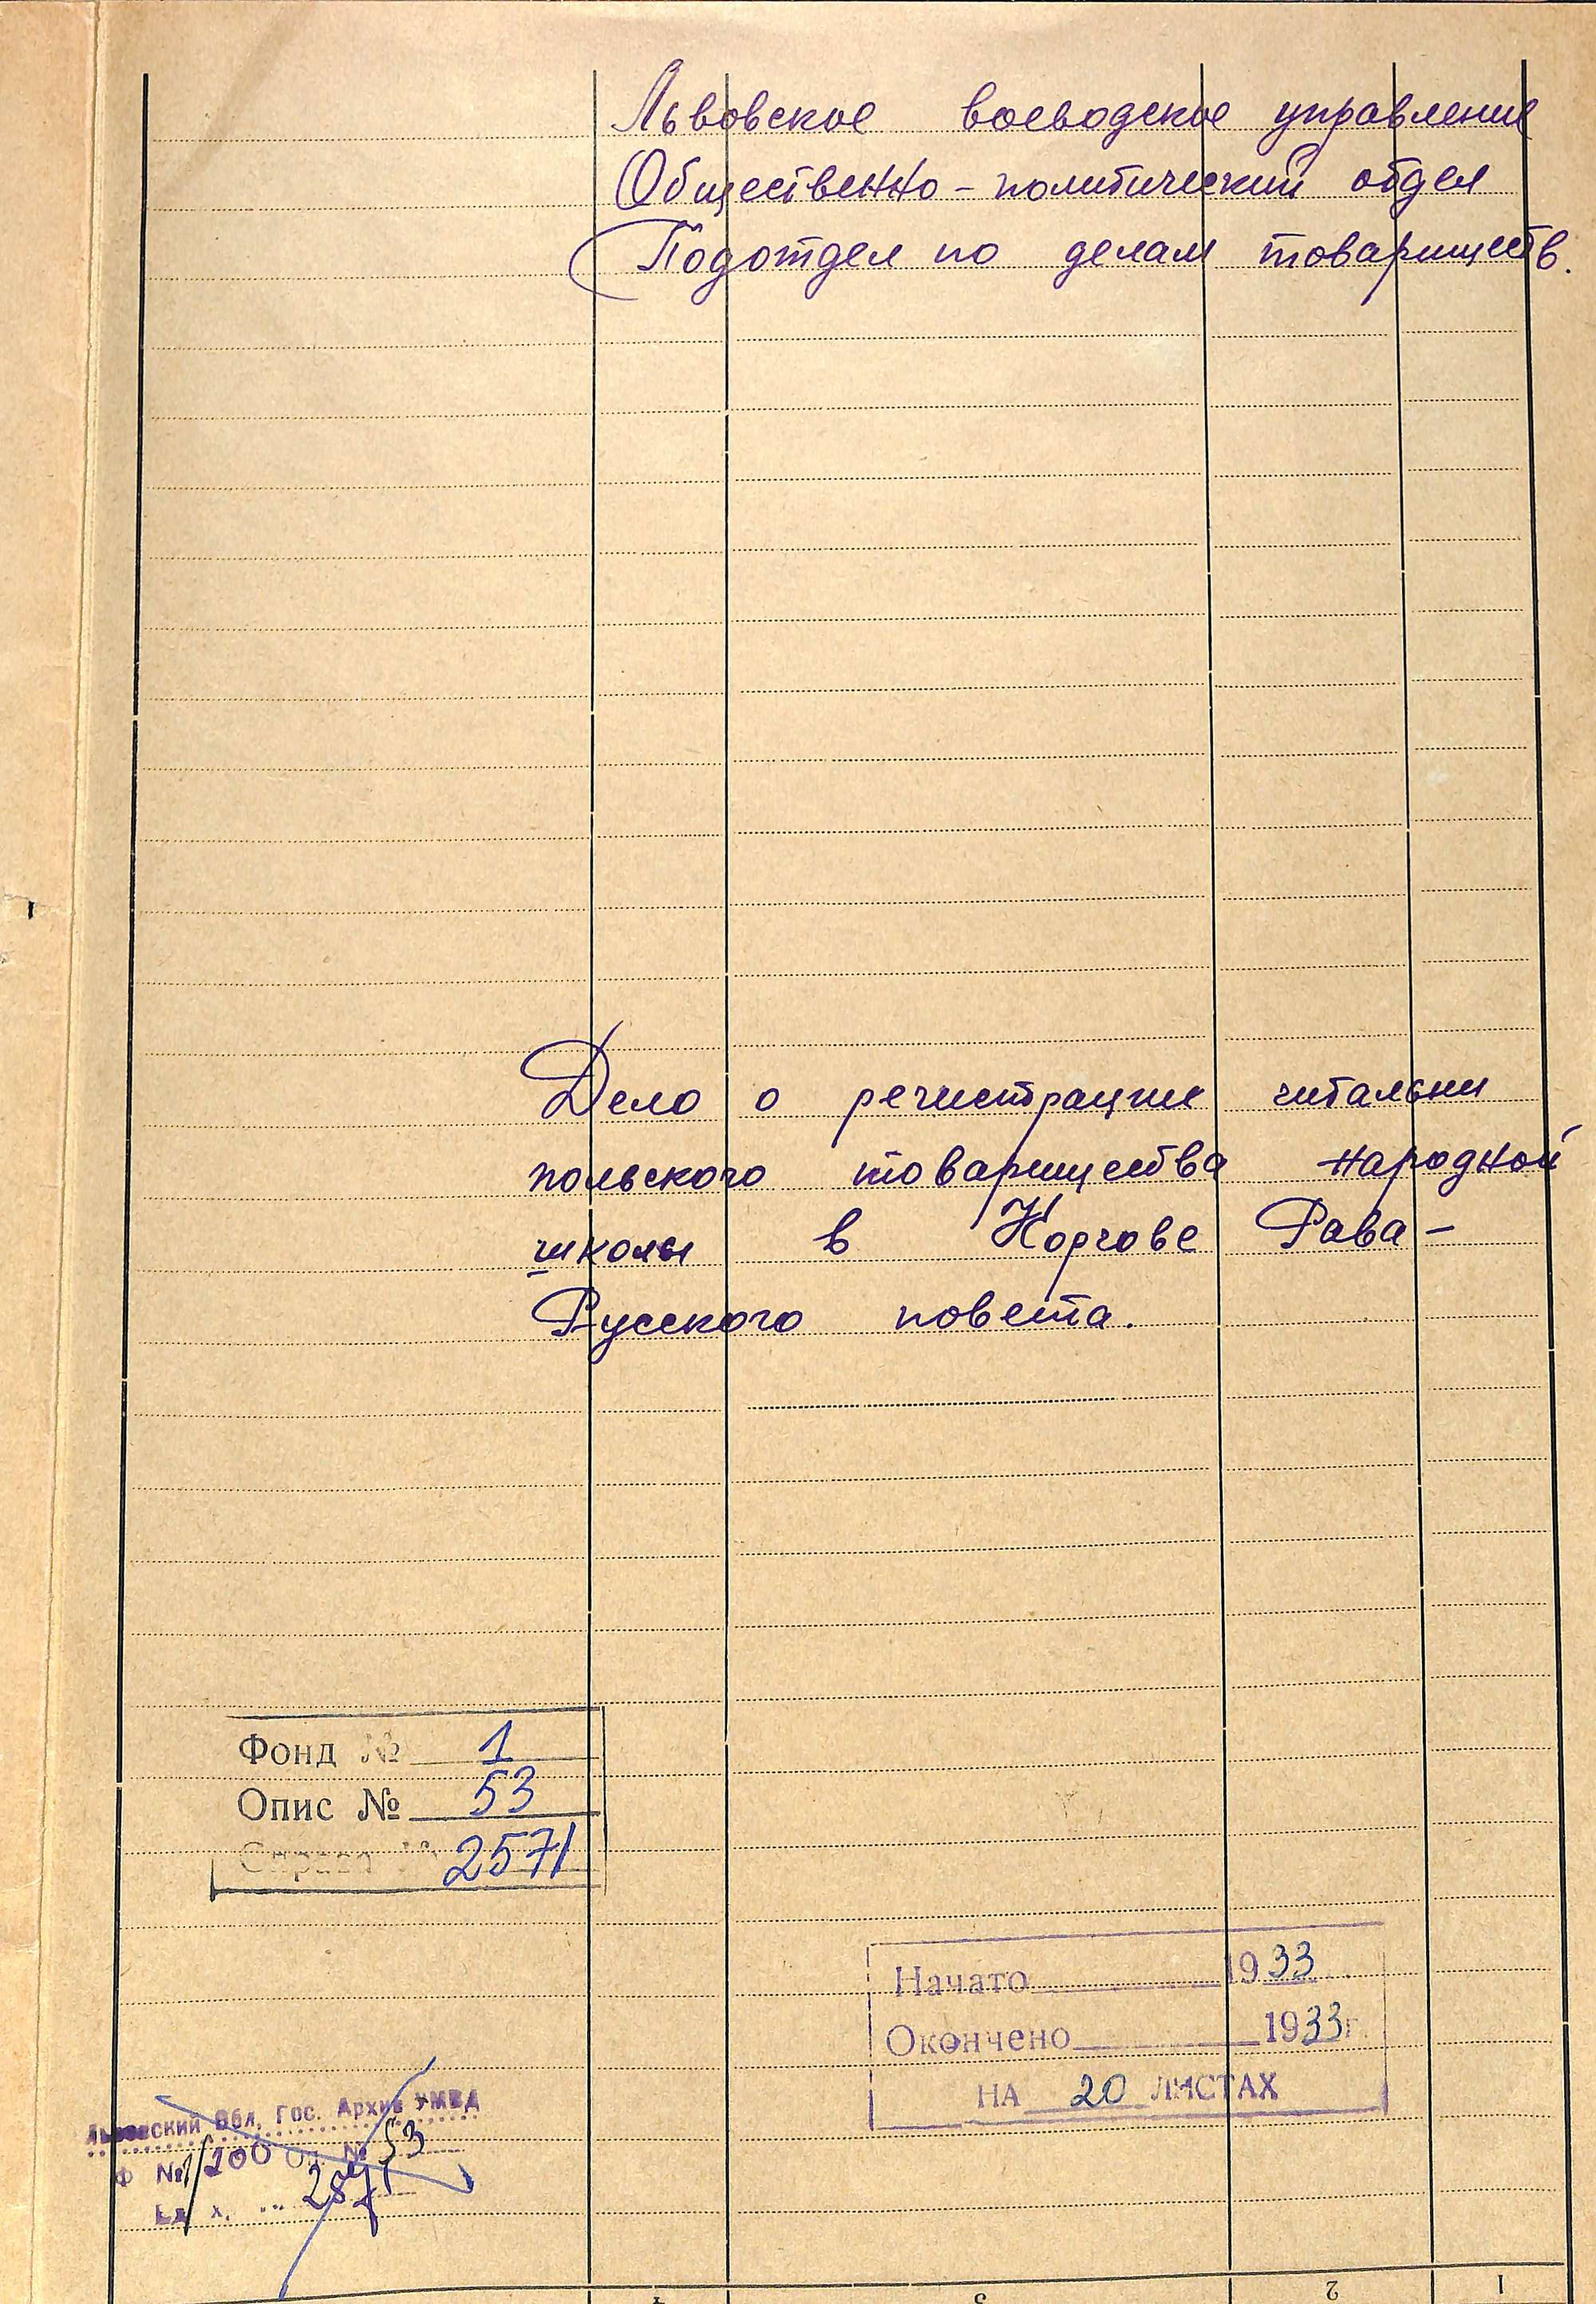 Львовское воеводское управление
Общественно-политический отдел
Подотдел по делам товариществ.
Дело о регистрации читальни
польского товарищества народной
школы в Корчове Рава-
Русского повета.
Фонд № 1
Опис № 53
Справа № 2571
Начато 1933
Окончено 1933 г.
НА 20 ЛИСТАХ
Львовский Обл. Гос. Архив УМВД
Ф № 1/200 оп. № 53
Ед. х.
3 2 1